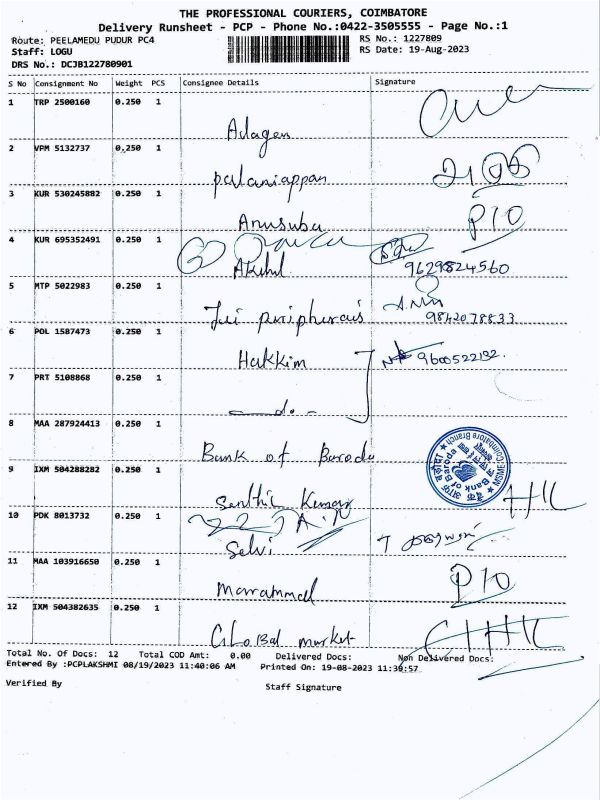 THE PROFESSIONAL COURIERS, COIMBATORE
Delivery Runsheet - PCP - Phone No.:0422-3505555 - Page No.:1
Route: PEELAMEDU PUDUR PC4 RS No.: 1227809
Staff: LOGU RS Date: 19-Aug-2023
DRS No.: DCJB122780901
S No Consignment No Weight PCS Consignee Details Signature
1 TRP 2500160 0.250 1
2 VPM 5132737 0.250 1
palaniappan
3 KUR 530245882 0.250 1 P10
Anusuba
4 KUR 695352491 0.250 1
Akihil 9629824560
5 MTP 5022983 0.250 1
9842078833
6 POL 1587473 0.250 1
Hakkim 9600522132.
7 PRT 5108868 0.250 1
-do.-
8 MAA 287924413 0.250 1
Bank of Baroda
Bank of Baroda
NSME-Coimbatore Branch
9 IXM 504288282 0.250 1
Senthil Kumar
10 PDK 8013732 0.250 1
Selvi
11 MAA 103916650 0.250 1 P10
12 IXM 504382635 0.250 1
Global market
Total No. Of Docs: 12 Total COD Amt: 0.00 Delivered Docs: Non Delivered Docs:
Entered By :PCPLAKSHMI 08/19/2023 11:40:06 AM Printed On: 19-08-2023 11:39:57
Verified By Staff Signature